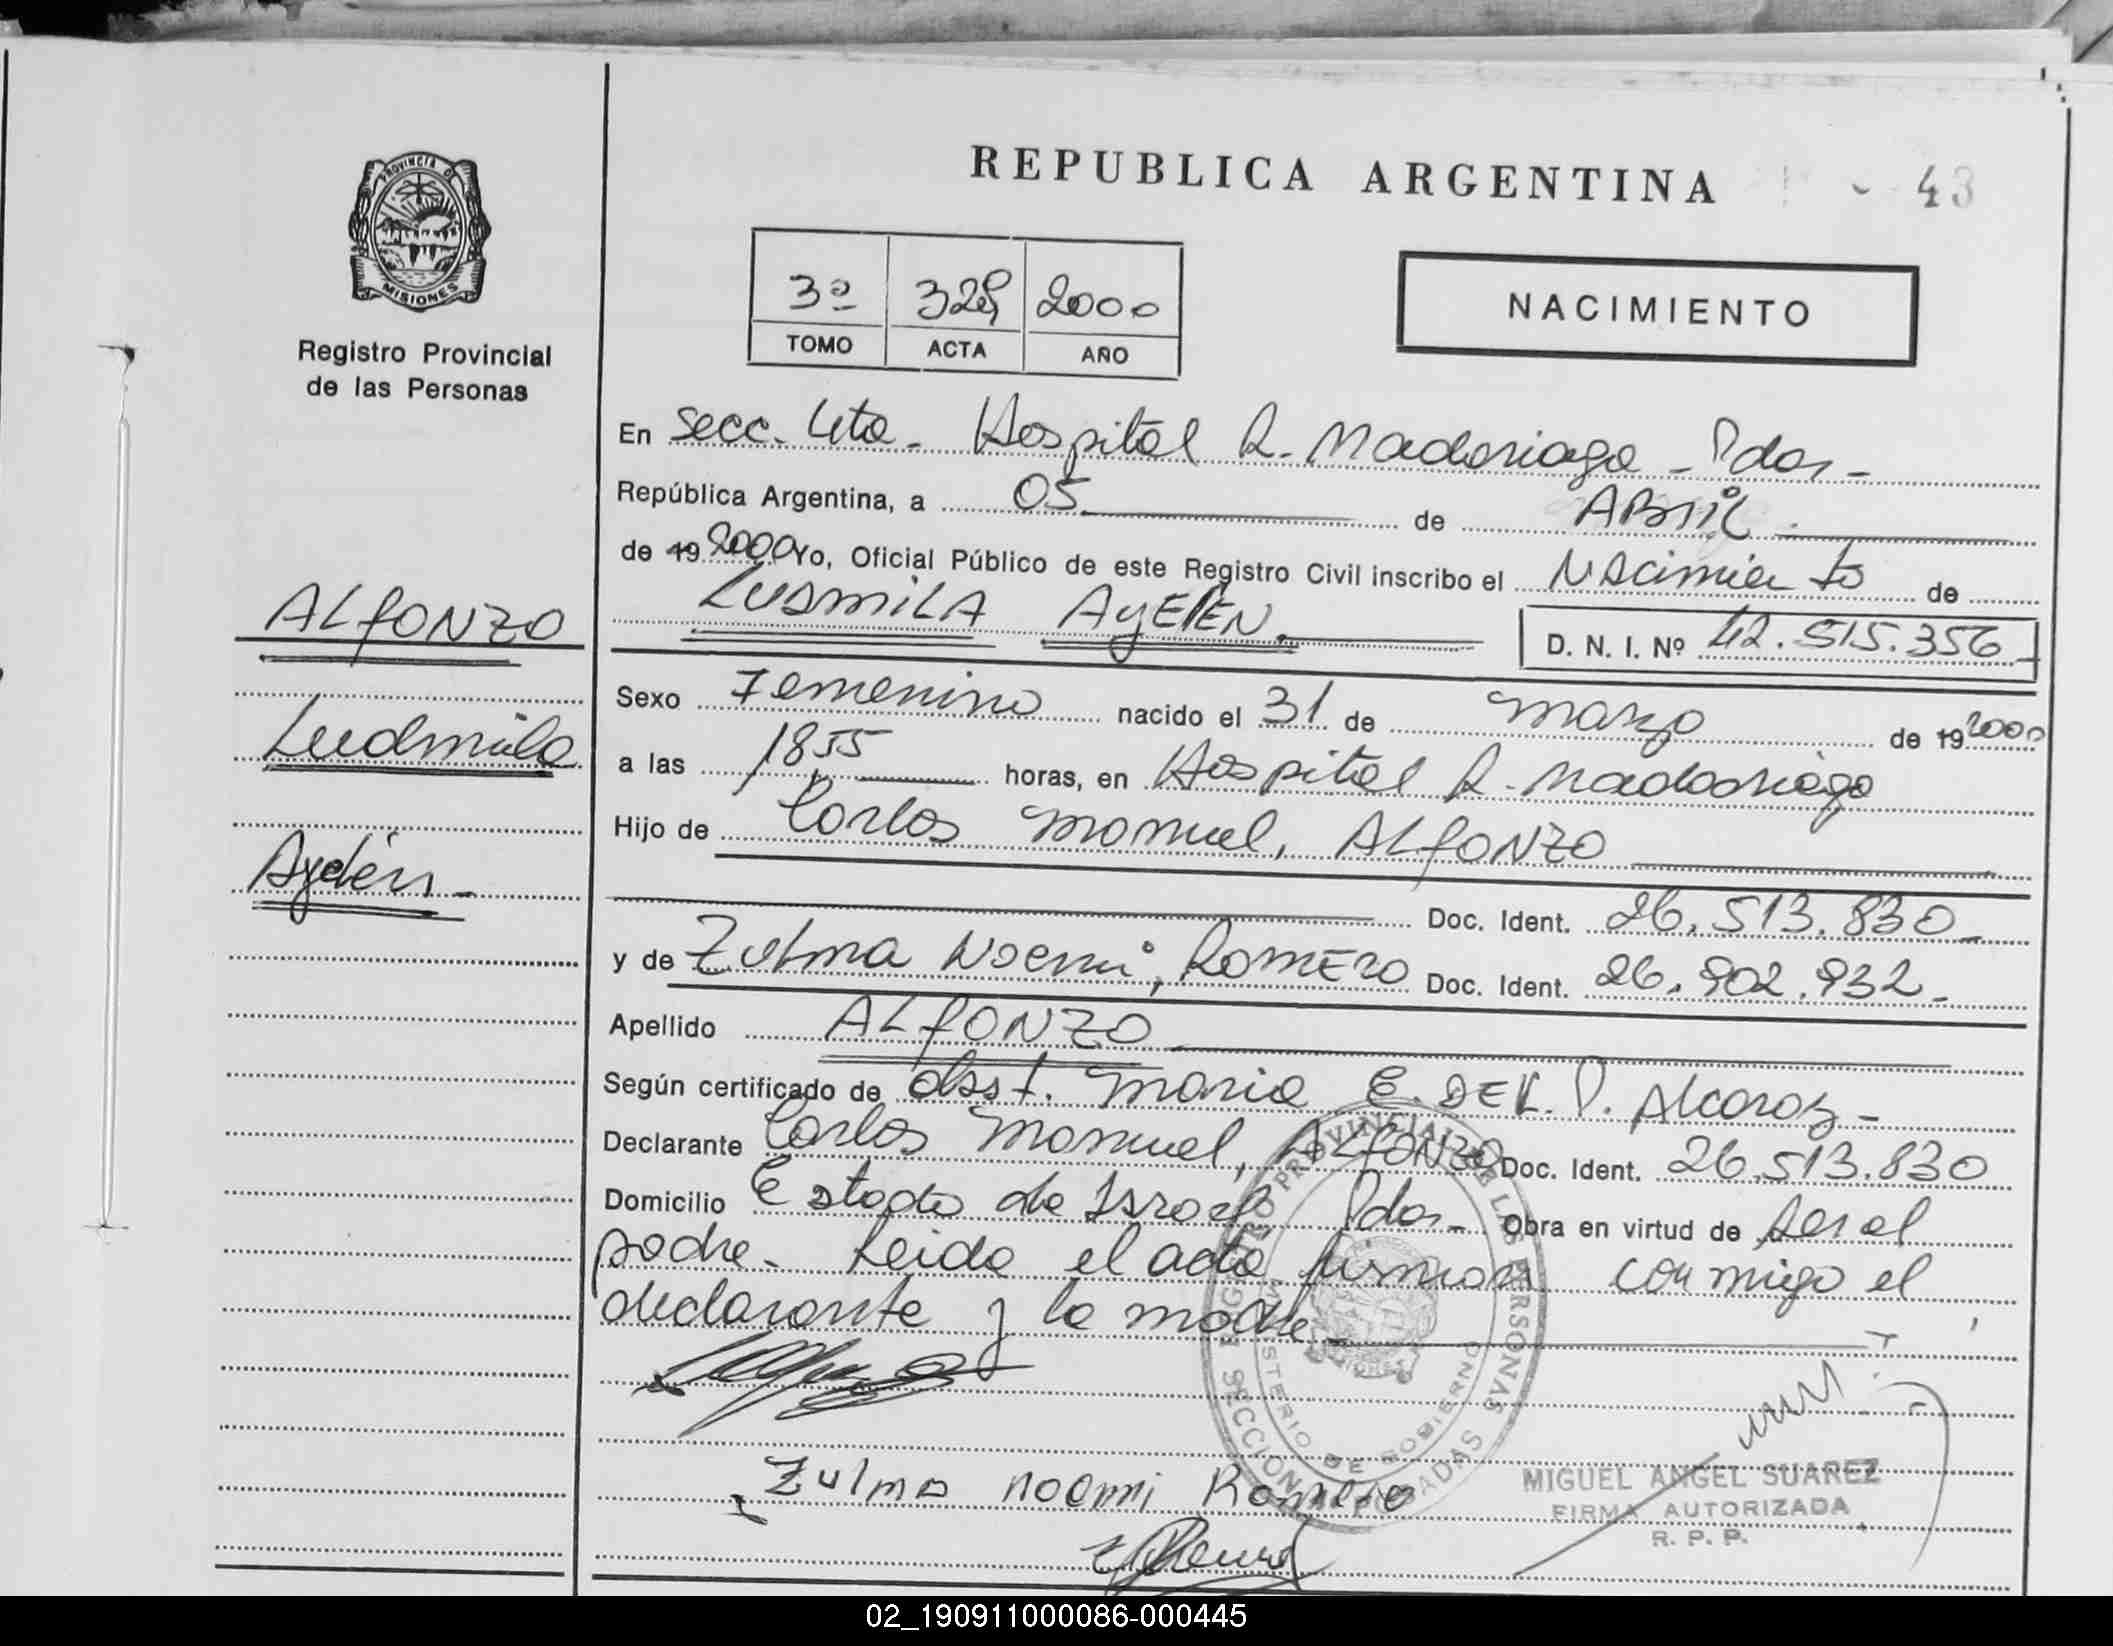 REPUBLICA ARGENTINA
43
PROVINCIA DE
MISIONES
Registro Provincial
de las Personas
3º 329 2000
TOMO ACTA AÑO
NACIMIENTO
En Secc. 4ta. Hospital R. Madariaga - Pdas -
República Argentina, a 05 de ABRIL
de 19 2000 Yo, Oficial Público de este Registro Civil inscribo el Nacimiento de
LUDMILA AYELEN
D. N. I. Nº 42.515.356
ALFONZO
Ludmila
Aylén -
Sexo Femenino nacido el 31 de marzo de 19 2000
a las 1855 horas, en Hospital R. Madariaga
Hijo de Carlos Manuel, ALFONZO
Doc. Ident. 26.513.830
y de Zulma Noemi, ROMERO Doc. Ident. 26.902.932
Apellido ALFONZO
Según certificado de obst. Maria E. DEL P. Alcaraz -
Declarante Carlos Manuel, ALFONZO Doc. Ident. 26.513.830
Domicilio Estado de Israel Pdas - Obra en virtud de ser el
padre. Leida el acta firman conmigo el
declarante y la madre
REGISTRO PROVINCIAL DE LAS PERSONAS
MINISTERIO DE GOBIERNO
SECCION POSADAS
Zulma noemi Romero
MIGUEL ANGEL SUAREZ
FIRMA AUTORIZADA
R. P. P.
02_190911000086-000445